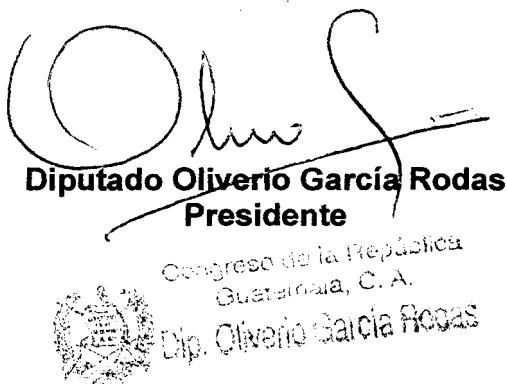 Diputado Oliverio García Rodas
Presidente
Congreso de la República
Guatemala, C. A.
Dip. Oliverio García Rodas